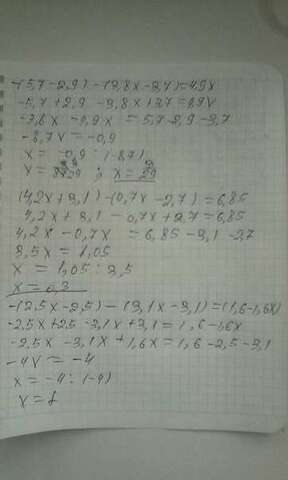 -(5,7-2,9)-(3,8x-3,7)=4,9x
-5,7+2,9-3,8x+3,7=4,9x
-3,8x-4,9x = 5,7-2,9-3,7
-8,7x = -0,9
x = -0,9 : (-8,7)
(4,2x+3,1)-(0,7x-2,7)=6,85
4,2x+3,1-0,7x+2,7=6,85
4,2x-0,7x = 6,85-3,1-2,7
3,5x = 1,05
x = 1,05 : 3,5
x = 0,3
-(2,5x-2,5)-(3,1x-3,1)=(1,6-1,6x)
-2,5x+2,5-3,1x+3,1=1,6-1,6x
-2,5x-3,1x+1,6x=1,6-2,5-3,1
-4x = -4
x = -4 : (-4)
x = 1